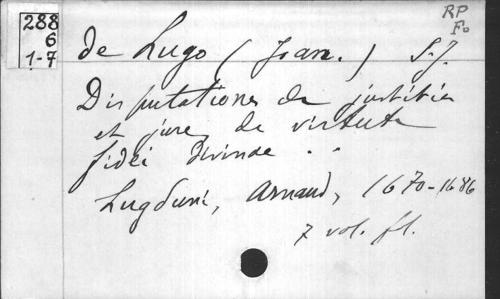 288
6
1-7
RP
Fo
de Lugo (Joan.) S.J.
Disputationes de justitia
et jure, de virtute
fidei divinae . .
Lugduni, Arnaud, 1670-1686
7 vol. fl.